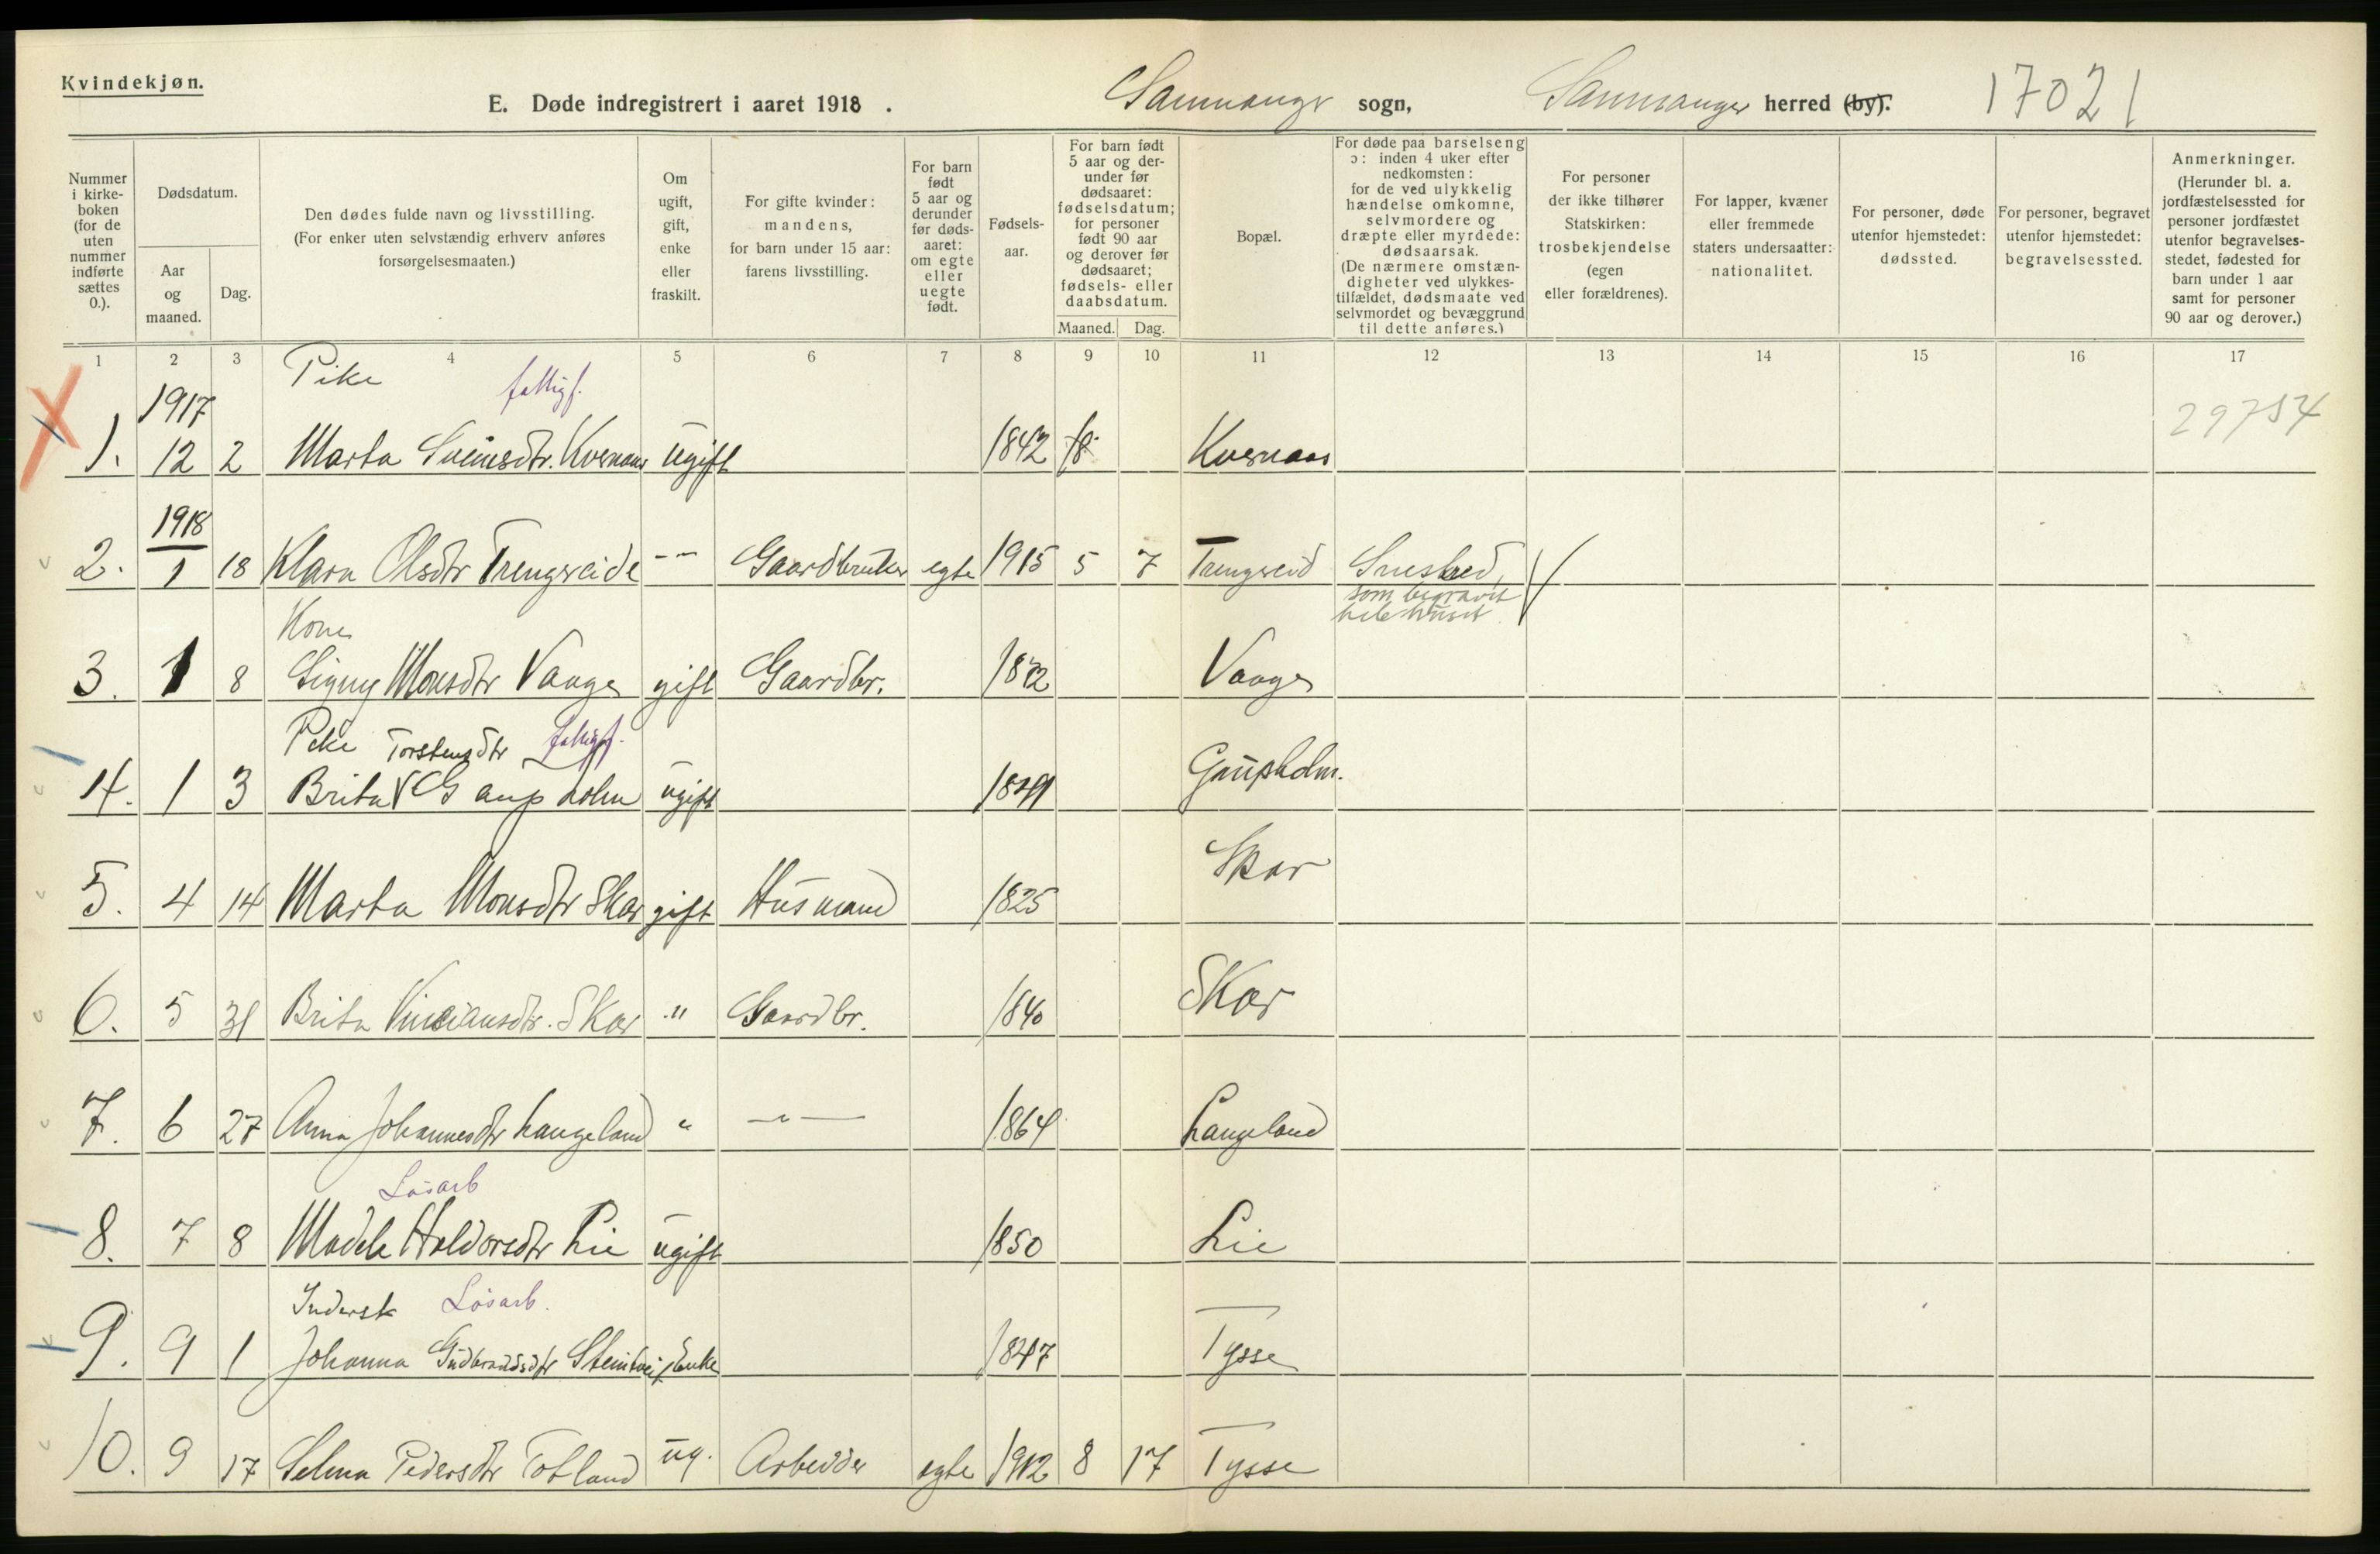 Kvindekjøn.
E. Døde indregistrert i aaret 1918. Samnanger sogn, Samnanger herred (by). 17021
Nummer i kirke-boken (for de uten nummer indførte sættes 0.).
Dødsdatum.
Aar og maaned.
Dag.
Den dødes fulde navn og livsstilling.
(For enker uten selvstændig erhverv anføres forsørgelsesmaaten.)
Om ugift, gift, enke eller fraskilt.
For gifte kvinder: mandens, for barn under 15 aar: farens livsstilling.
For barn født 5 aar og derunder før døds-aaret: om egte eller uegte født.
Fødsels-aar.
For barn født 5 aar og der-under før dødsaaret: fødselsdatum; for personer født 90 aar og derover før dødsaaret; fødsels- eller daabsdatum.
Maaned. Dag.
Bopæl.
For døde paa barselseng ɔ: inden 4 uker efter nedkomsten: for de ved ulykkelig hændelse omkomne, selvmordere og dræpte eller myrdede: dødsaarsak. (De nærmere omstæn-digheter ved ulykkes-tilfældet, dødsmaate ved selvmordet og bevæggrund til dette anføres.)
For personer der ikke tilhører Statskirken: trosbekjendelse (egen eller forældrenes).
For lapper, kvæner eller fremmede staters undersaatter: nationalitet.
For personer, døde utenfor hjemstedet: dødssted.
For personer, begravet utenfor hjemstedet: begravelsessted.
Anmerkninger. (Herunder bl. a. jordfæstelsessted for personer jordfæstet utenfor begravelses-stedet, fødested for barn under 1 aar samt for personer 90 aar og derover.)
1 2 3 4 5 6 7 8 9 10 11 12 13 14 15 16 17
Pike fattigf.
1917 29754
1. 12 2 Marta Sveinsdtr. Kvernaas ugift 1842 Kvernaas
1918
2. 1 18 Klara Olsdtr Trengereide -"- Gaardbruker egte 1915 5 7 Trengereid Sneskred,
som begravet
hele huset
Kone
3. 1 8 Signy Monsdtr Vaage gift Gaardbr. 1872 Vaage
Pike Torstensdtr fattigf.
4. 1 3 Brita Gaupholm ugift Gaupholm.
5. 4 14 Marta Monsdtr Skar gift Husmand 1825 Skar
6. 5 31 Brita Skar " Gaardbr. 1840 Skar
7. 6 27 Anna Johannesdtr Langeland " -"- 1864 Langeland
Løsarb
8. 7 8 Madele Haldorsdtr Lie ugift 1850 Lie
Inderst Løsarb.
9. 9 1 Johanna Gudbrandsdtr Enke 1847 Tysse
10. 9 17 Selma Pedersdtr Totland ug. Arbeider egte 1912 8 17 Tysse